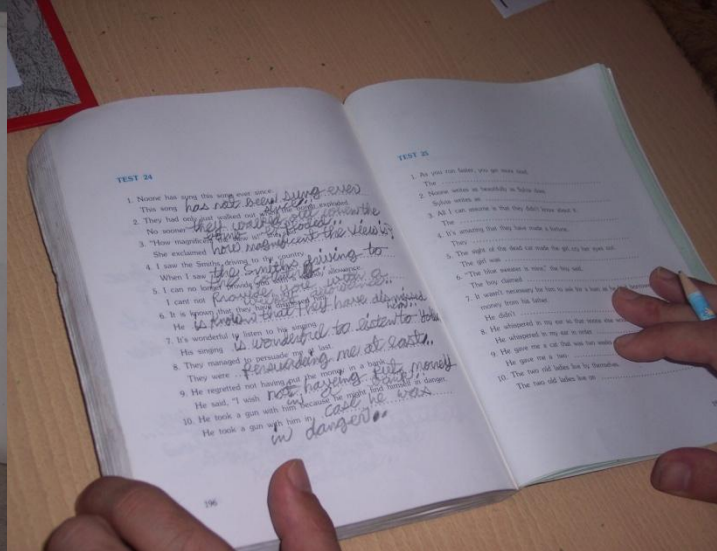 TEST 24
1. Noone has sung this song ever since.
This song has not been sung ever
since.
2. They had only just walked out when the bomb exploded.
No sooner they walked out when the
bomb exploded.
3. "How magnificent the view is"
She exclaimed how magnificent the view is.
4. I saw the Smiths driving to the country.
When I saw the Smiths driving to
5. I can no longer provide you with allowance.
I cant not provide you with a
6. It is known that they have
He is known that they have dismissed
him.
7. It's wonderful to listen to his singing.
His singing is wonderful to listen to
8. They managed to persuade me at last.
They were persuading me at last..
9. He regretted not having put the money in a bank.
He said, "I wish not having put money
in bank
10. He took a gun with him because he might find himself in danger.
He took a gun with him in case he was
in danger..
196
TEST 25
1. As you run faster, you get more tired.
The
2. Noone writes as beautifully as Sylvia does.
Sylvia writes as
3. All I can assume is that they didn't know about it.
The
4. It's amazing that they have made a fortune.
They
5. The sight of the dead cat made the girl cry her eyes out.
The girl was
6. "The blue sweater is mine," the boy said.
The boy claimed
7. It wasn't necessary for him to ask for a loan as he
money from his father.
He didn't
8. He whispered in my ear so that noone else
He whispered in my ear in order
9. He gave me a cat that was two weeks
He gave me a two
10. The two old ladies live by themselves.
The two old ladies live on